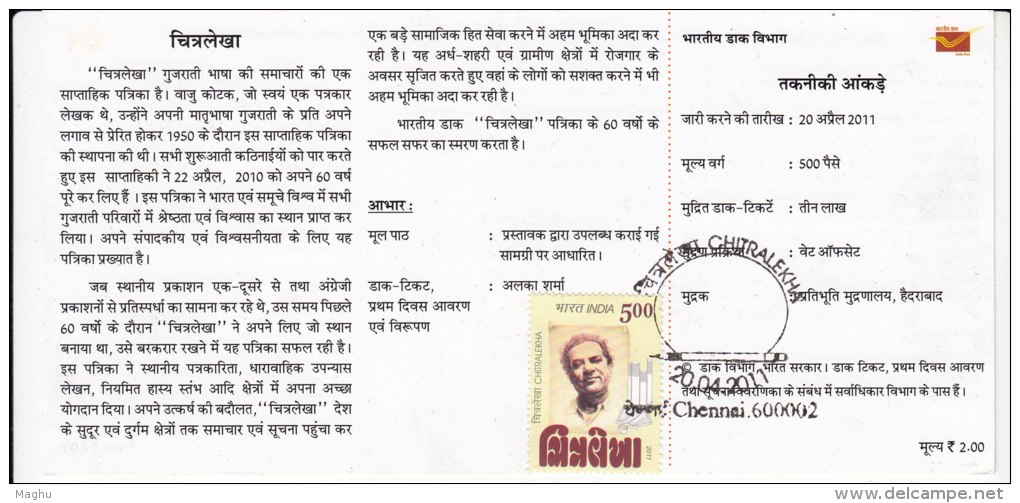 चित्रलेखा
‘‘चित्रलेखा’’ गुजराती भाषा की समाचारों की एक
साप्ताहिक पत्रिका है। वाजु कोटक, जो स्वयं एक पत्रकार
लेखक थे, उन्होंने अपनी मातृभाषा गुजराती के प्रति अपने
लगाव से प्रेरित होकर 1950 के दौरान इस साप्ताहिक पत्रिका
की स्थापना की थी। सभी शुरूआती कठिनाईयों को पार करते
हुए इस साप्ताहिकी ने 22 अप्रैल, 2010 को अपने 60 वर्ष
पूरे कर लिए हैं । इस पत्रिका ने भारत एवं समूचे विश्व में सभी
गुजराती परिवारों में श्रेष्ठता एवं विश्वास का स्थान प्राप्त कर
लिया। अपने संपादकीय एवं विश्वसनीयता के लिए यह
पत्रिका प्रख्यात है।
जब स्थानीय प्रकाशन एक-दूसरे से तथा अंग्रेजी
प्रकाशनों से प्रतिस्पर्धा का सामना कर रहे थे, उस समय पिछले
60 वर्षो के दौरान ‘‘चित्रलेखा’’ ने अपने लिए जो स्थान
बनाया था, उसे बरकरार रखने में यह पत्रिका सफल रही है।
इस पत्रिका ने स्थानीय पत्रकारिता, धारावाहिक उपन्यास
लेखन, नियमित हास्य स्तंभ आदि क्षेत्रों में अपना अच्छा
योगदान दिया। अपने उत्कर्ष की बदौलत,‘‘चित्रलेखा’’ देश
के सुदूर एवं दुर्गम क्षेत्रों तक समाचार एवं सूचना पहुंचा कर
एक बड़े सामाजिक हित सेवा करने में अहम भूमिका अदा कर
रही है। यह अर्ध-शहरी एवं ग्रामीण क्षेत्रों में रोजगार के
अवसर सृजित करते हुए वहां के लोगों को सशक्त करने में भी
अहम भूमिका अदा कर रही है।
भारतीय डाक ‘‘चित्रलेखा’’ पत्रिका के 60 वर्षो के
सफल सफर का स्मरण करता है।
आभार :
मूल पाठ : प्रस्तावक द्वारा उपलब्ध कराई गई
सामग्री पर आधारित।
डाक-टिकट, : अलका शर्मा
प्रथम दिवस आवरण
एवं विरूपण
भारत INDIA 500
चित्रलेखा CHITRALEKHA
ચિત્રલેખા
2011
भारतीय डाक विभाग
तकनीकी आंकड़े
जारी करने की तारीख : 20 अप्रैल 2011
मूल्य वर्ग : 500 पैसे
मुद्रित डाक-टिकटें : तीन लाख
मुद्रण प्रक्रिया : वेट ऑफसेट
मुद्रक : प्रतिभूति मुद्रणालय, हैदराबाद
चित्रलेखा CHITRALEKHA
20.04.2011
चेन्नई Chennai.600002
© डाक विभाग, भारत सरकार। डाक टिकट, प्रथम दिवस आवरण
तथा सूचना विवरणिका के संबंध में सर्वाधिकार विभाग के पास हैं।
मूल्य ₹ 2.00
Maghu
delcampe.net